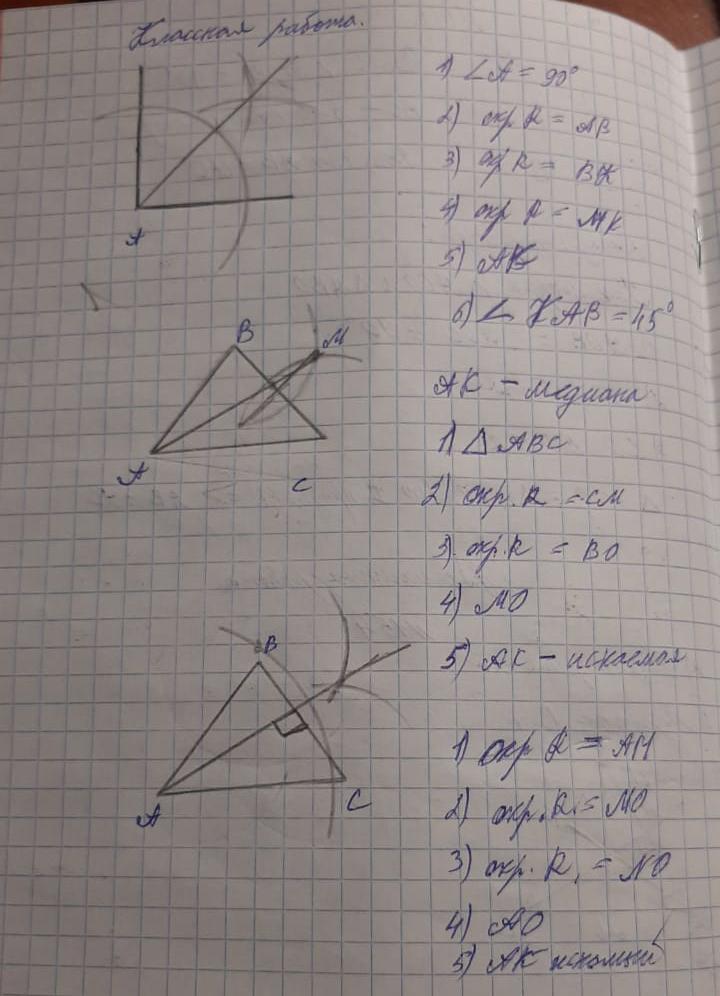 Классная работа.
A
1) ∠A = 90°
2) окр R = AB
3) окр R = BK
4) окр R = MK
5) AK
6) ∠ KAB = 45°
B
M
A
C
AK - медиана
1) △ ABC
2) окр. R = CM
3) окр. R = BO
4) MO
5) AK - искаемая
B
A
C
1) окр R = AM
2) окр. R₁ = MO
3) окр. R₁ = NO
4) AO
5) AK